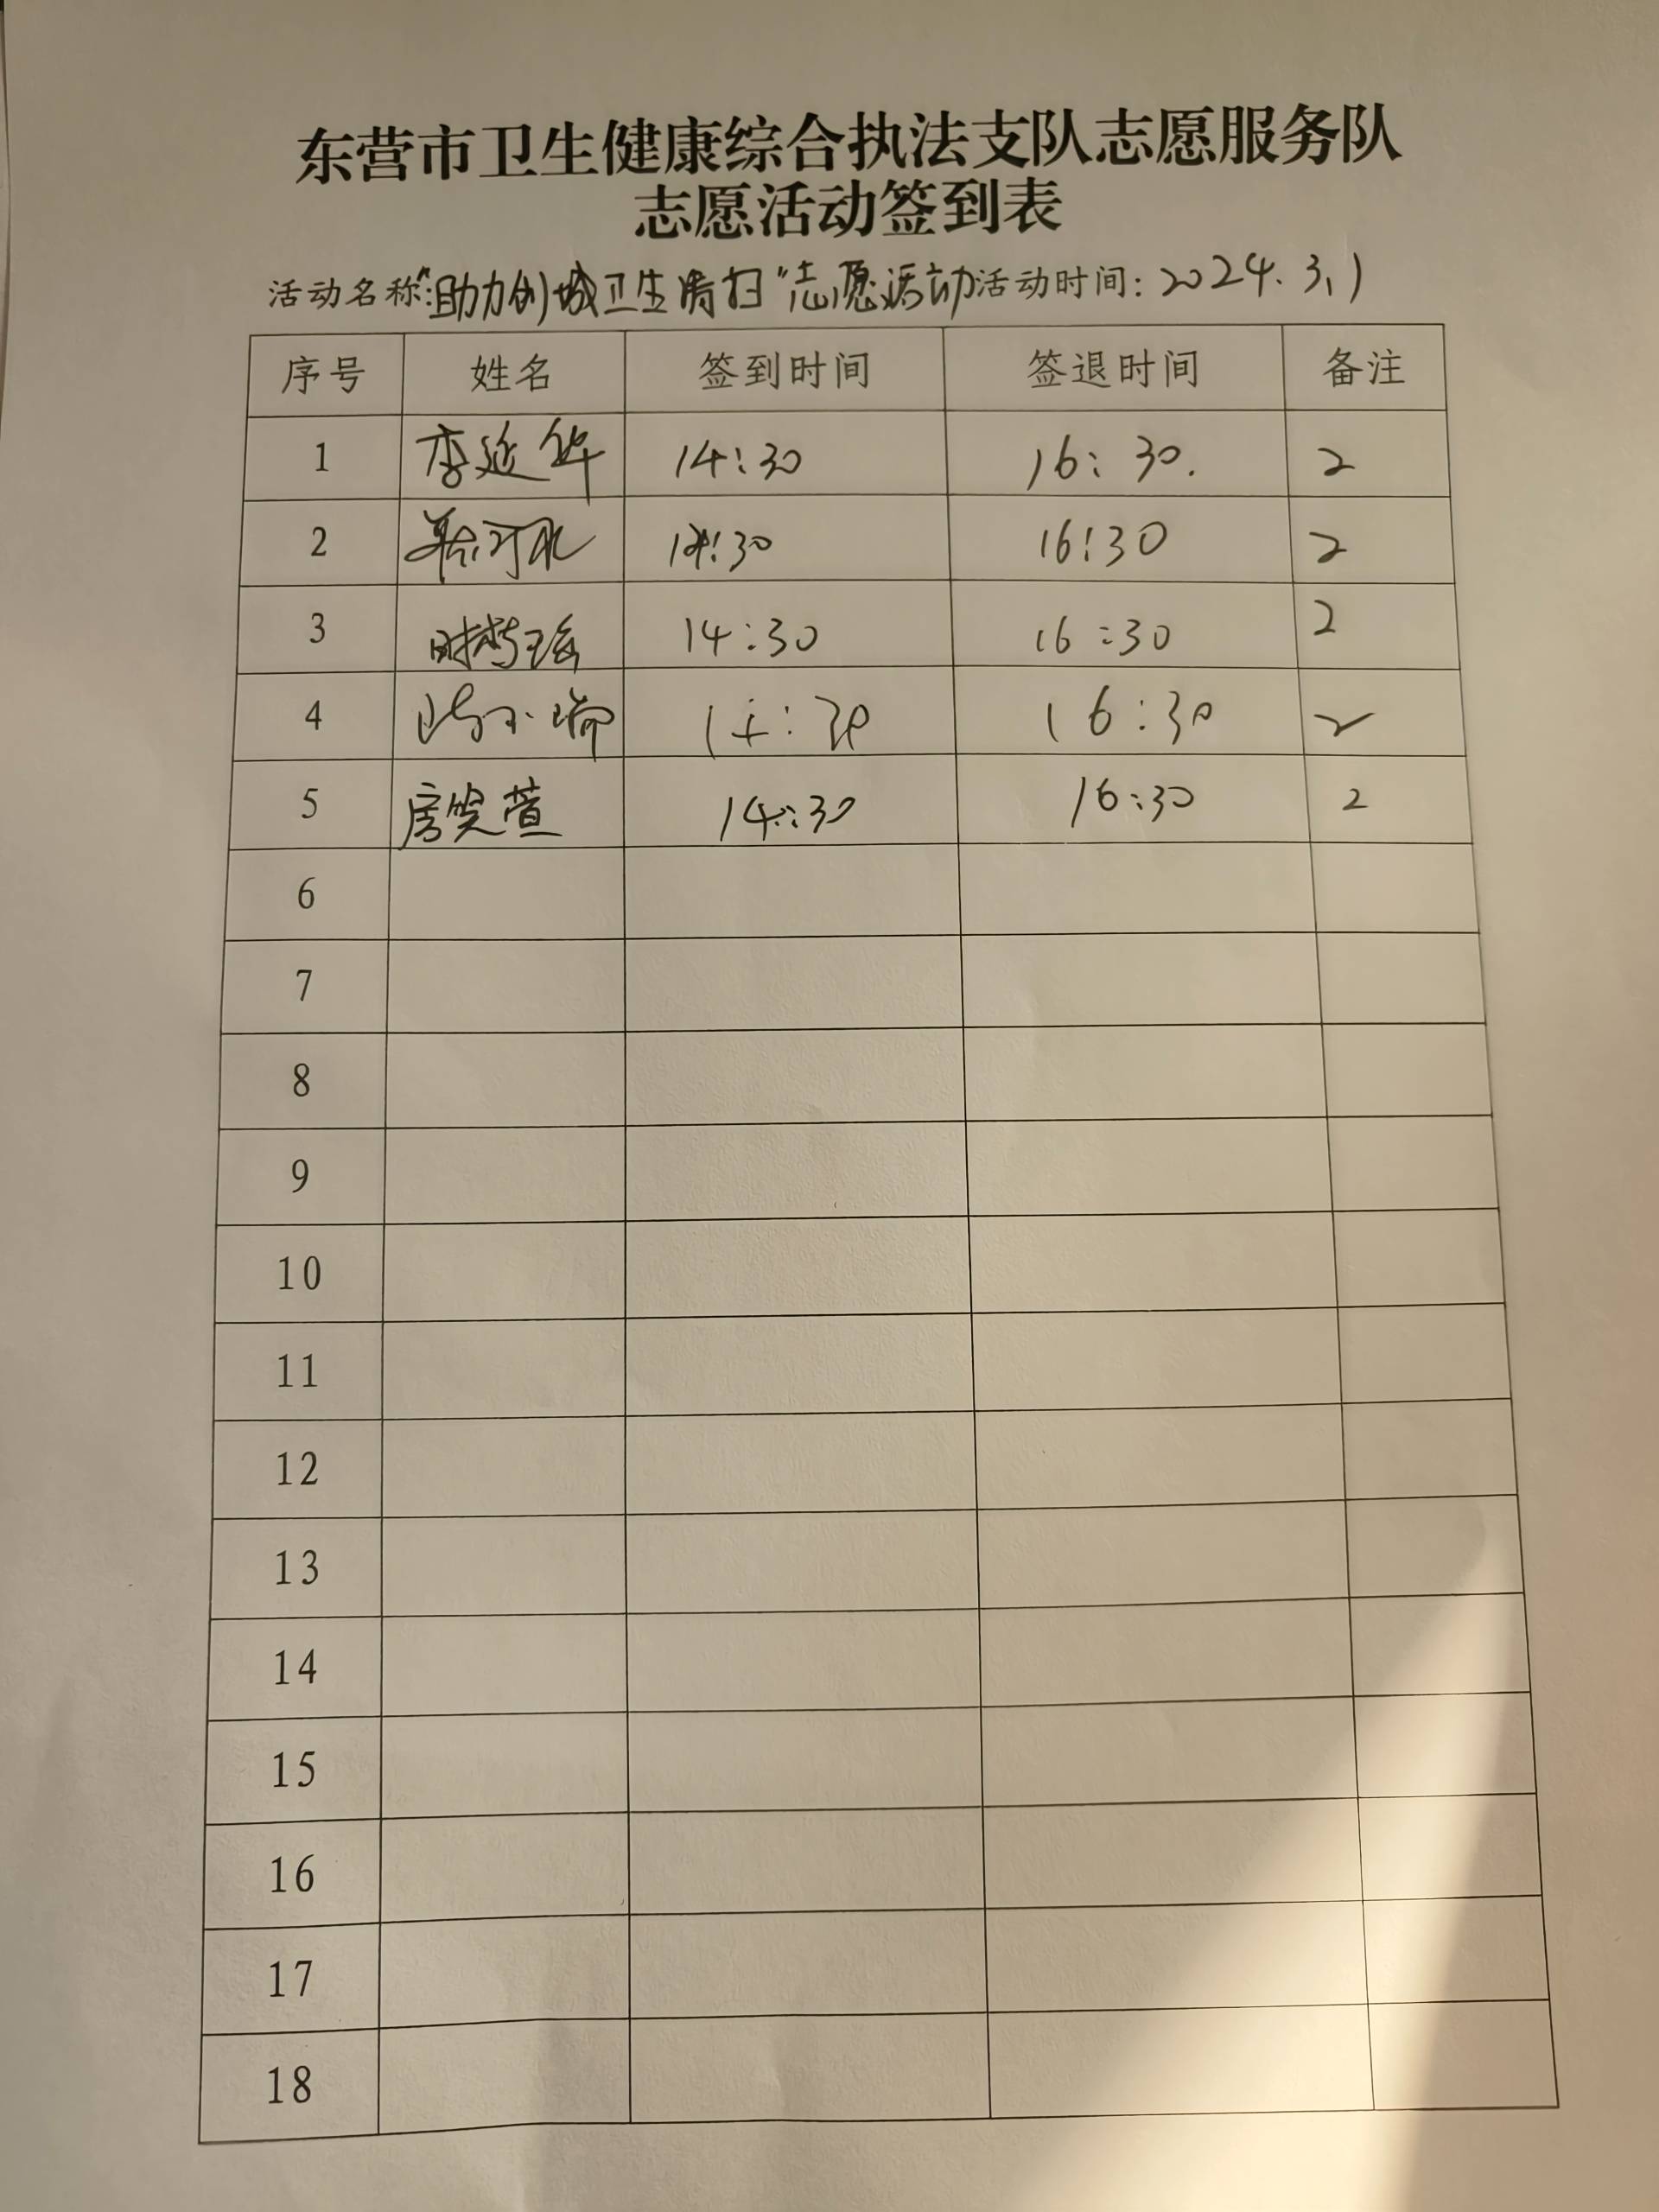 东营市卫生健康综合执法支队志愿服务队
志愿活动签到表
活动名称:"助力创城卫生清扫"志愿活动 活动时间: 2024.3.1
序号 姓名 签到时间 签退时间 备注
1 李延华 14:30 16:30. 2
2 14:30 16:30 2
3 时梦瑶 14:30 16:30 2
4 14:30 16:30 2
5 房笑萱 14:30 16:30 2
6
7
8
9
10
11
12
13
14
15
16
17
18